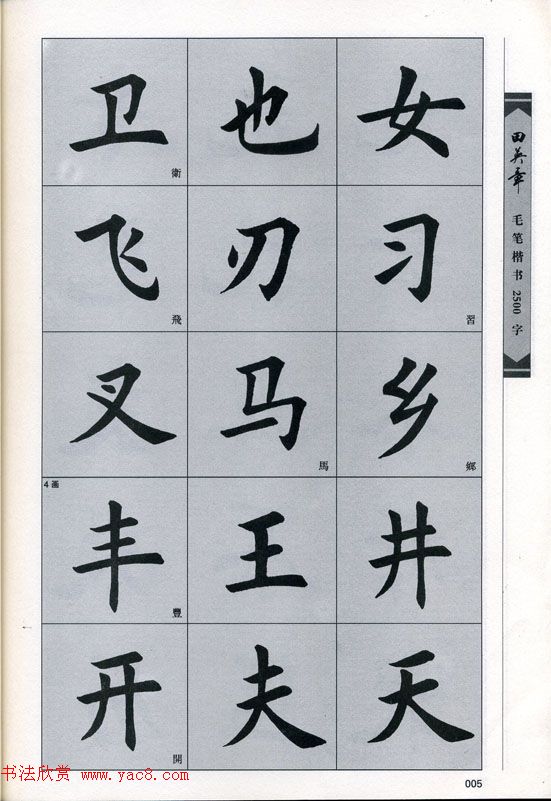 卫 也 女
衛
飞 刃 习
飛 習
叉 马 乡
馬 鄉
4画
丰 王 井
豐
开 夫 天
開
田英章
毛笔楷书2500字
书法欣赏 www.yac8.com
005